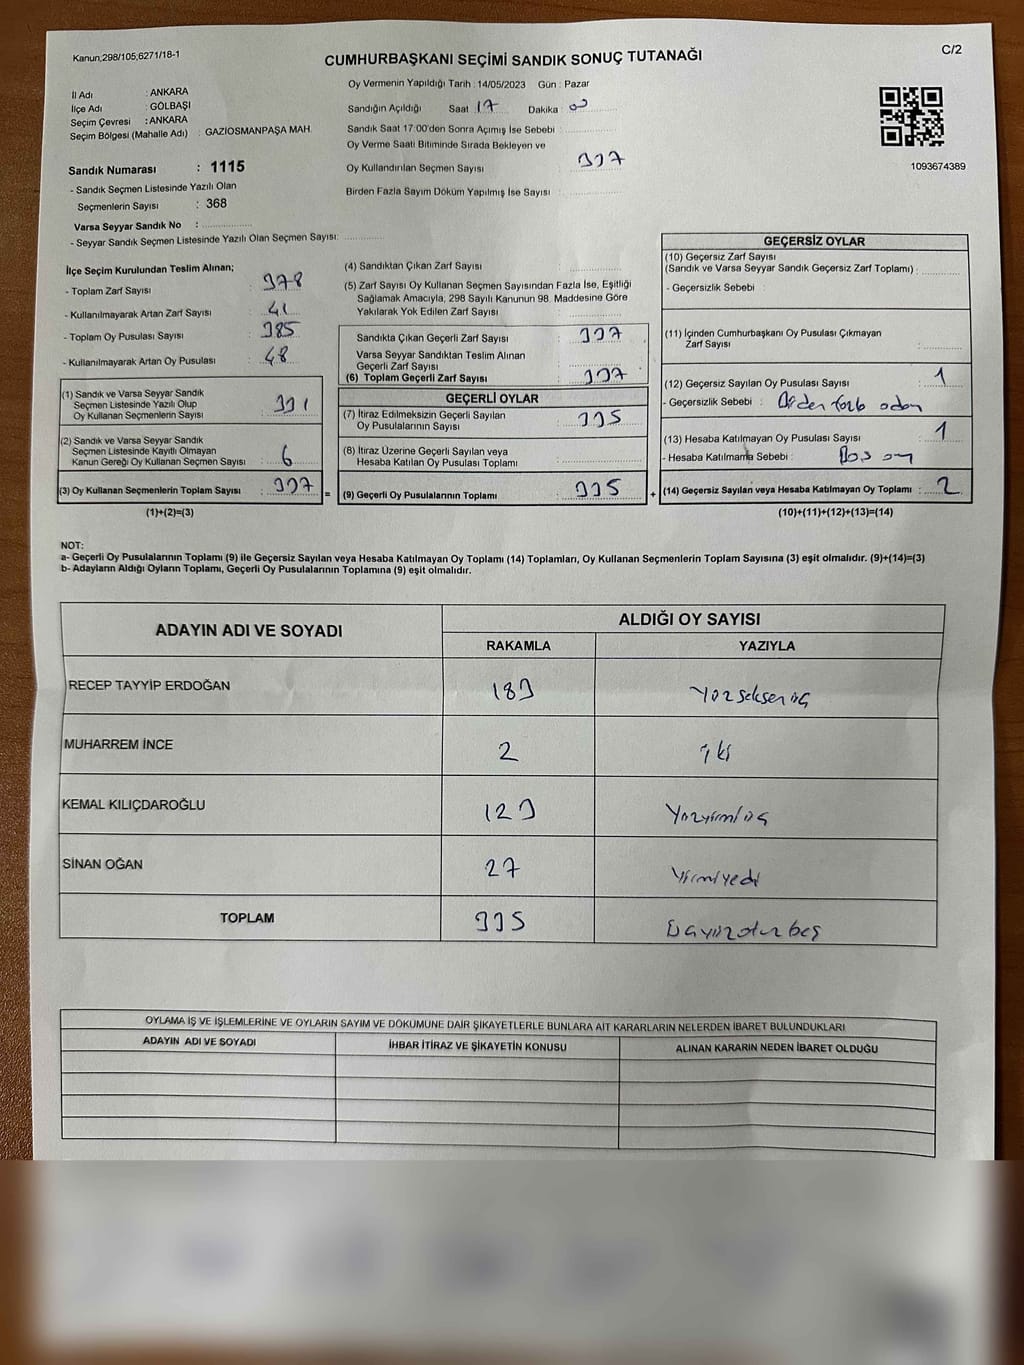 Kanun;298/105;6271/18-1
C/2
CUMHURBAŞKANI SEÇİMİ SANDIK SONUÇ TUTANAĞI
İl Adı : ANKARA
İlçe Adı : GÖLBAŞI
Seçim Çevresi : ANKARA
Seçim Bölgesi (Mahalle Adı) : GAZİOSMANPAŞA MAH.
Sandık Numarası : 1115
- Sandık Seçmen Listesinde Yazılı Olan
Seçmenlerin Sayısı : 368
Varsa Seyyar Sandık No :
- Seyyar Sandık Seçmen Listesinde Yazılı Olan Seçmen Sayısı:
Oy Vermenin Yapıldığı Tarih : 14/05/2023 Gün : Pazar
Sandığın Açıldığı Saat 17 Dakika : 00
Sandık Saat 17:00'den Sonra Açımış İse Sebebi :
Oy Verme Saati Bitiminde Sırada Bekleyen ve
Oy Kullandırılan Seçmen Sayısı : 337
Birden Fazla Sayım Döküm Yapılmış İse Sayısı :
1093674389
İlçe Seçim Kurulundan Teslim Alınan;
- Toplam Zarf Sayısı : 378
- Kullanılmayarak Artan Zarf Sayısı : 41
- Toplam Oy Pusulası Sayısı : 385
- Kullanılmayarak Artan Oy Pusulası : 48
(1) Sandık ve Varsa Seyyar Sandık
Seçmen Listesinde Yazılı Olup
Oy Kullanan Seçmenlerin Sayısı : 331
(2) Sandık ve Varsa Seyyar Sandık
Seçmen Listesinde Kayıtlı Olmayan
Kanun Gereği Oy Kullanan Seçmen Sayısı : 6
(3) Oy Kullanan Seçmenlerin Toplam Sayısı : 337 =
(1)+(2)=(3)
(4) Sandıktan Çıkan Zarf Sayısı :
(5) Zarf Sayısı Oy Kullanan Seçmen Sayısından Fazla İse, Eşitliği
Sağlamak Amacıyla, 298 Sayılı Kanunun 98. Maddesine Göre
Yakılarak Yok Edilen Zarf Sayısı :
Sandıkta Çıkan Geçerli Zarf Sayısı : 337
Varsa Seyyar Sandıktan Teslim Alınan
Geçerli Zarf Sayısı :
(6) Toplam Geçerli Zarf Sayısı : 337
GEÇERLİ OYLAR
(7) İtiraz Edilmeksizin Geçerli Sayılan
Oy Pusulalarının Sayısı : 335
(8) İtiraz Üzerine Geçerli Sayılan veya
Hesaba Katılan Oy Pusulası Toplamı :
(9) Geçerli Oy Pusulalarının Toplamı : 335 +
GEÇERSİZ OYLAR
(10) Geçersiz Zarf Sayısı
(Sandık ve Varsa Seyyar Sandık Geçersiz Zarf Toplamı) :
- Geçersizlik Sebebi :
(11) İçinden Cumhurbaşkanı Oy Pusulası Çıkmayan
Zarf Sayısı :
(12) Geçersiz Sayılan Oy Pusulası Sayısı : 1
- Geçersizlik Sebebi :
(13) Hesaba Katılmayan Oy Pusulası Sayısı : 1
- Hesaba Katılmama Sebebi :
(14) Geçersiz Sayılan veya Hesaba Katılmayan Oy Toplamı : 2
(10)+(11)+(12)+(13)=(14)
NOT:
a- Geçerli Oy Pusulalarının Toplamı (9) ile Geçersiz Sayılan veya Hesaba Katılmayan Oy Toplamı (14) Toplamları, Oy Kullanan Seçmenlerin Toplam Sayısına (3) eşit olmalıdır. (9)+(14)=(3)
b- Adayların Aldığı Oyların Toplamı, Geçerli Oy Pusulalarının Toplamına (9) eşit olmalıdır.
ADAYIN ADI VE SOYADI
ALDIĞI OY SAYISI
RAKAMLA YAZIYLA
RECEP TAYYİP ERDOĞAN 183 Yüzseksenüç
MUHARREM İNCE 2 iki
KEMAL KILIÇDAROĞLU 123 Yüzyirmiüç
SİNAN OĞAN 27 Yirmiyedi
TOPLAM 335 Üçyüzotuzbeş
OYLAMA İŞ VE İŞLEMLERİNE VE OYLARIN SAYIM VE DÖKÜMÜNE DAİR ŞİKAYETLERLE BUNLARA AİT KARARLARIN NELERDEN İBARET BULUNDUKLARI
ADAYIN ADI VE SOYADI İHBAR İTİRAZ VE ŞİKAYETİN KONUSU ALINAN KARARIN NEDEN İBARET OLDUĞU